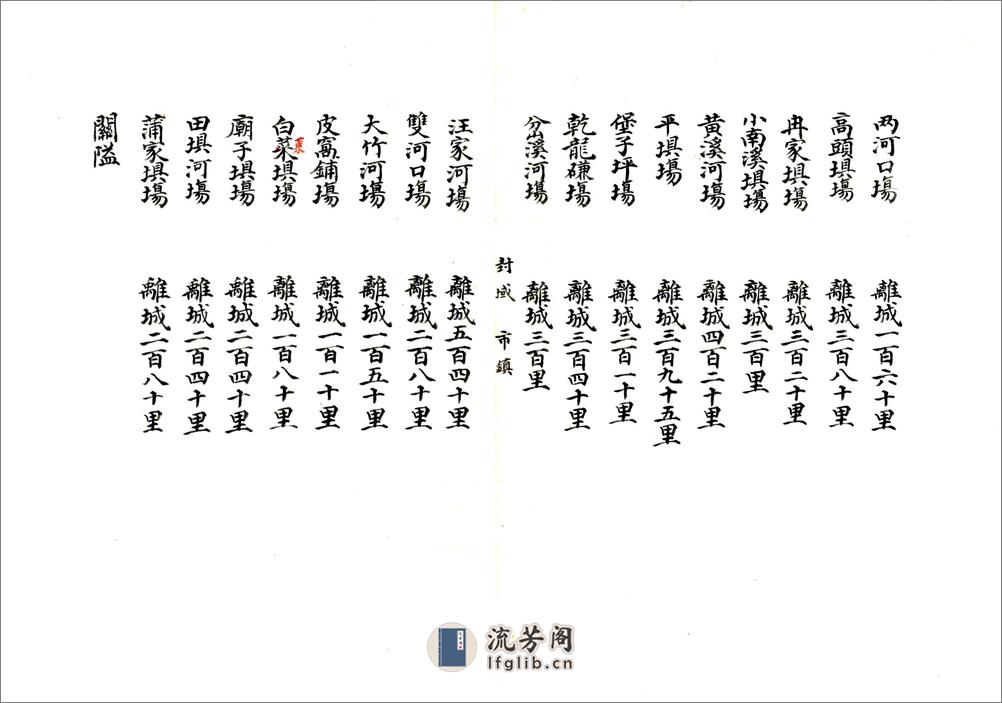 两河口塲 離城一百六十里
高頭垻塲 離城三百八十里
冉家垻塲 離城三百二十里
小南溪垻塲 離城三百里
黃溪河塲 離城四百二十里
平垻塲 離城三百九十五里
堡子坪塲 離城三百一十里
乾龍磏塲 離城三百四十里
岔溪河塲 離城三百里
封域 市鎮
汪家河塲 離城五百四十里
雙河口塲 離城二百八十里
大竹河塲 離城一百五十里
皮窩鋪塲 離城一百一十里
白菜垻塲 離城一百八十里
廟子垻塲 離城二百四十里
田垻河塲 離城二百四十里
蒲家垻塲 離城二百八十里
關隘
流芳阁
lfglib.cn